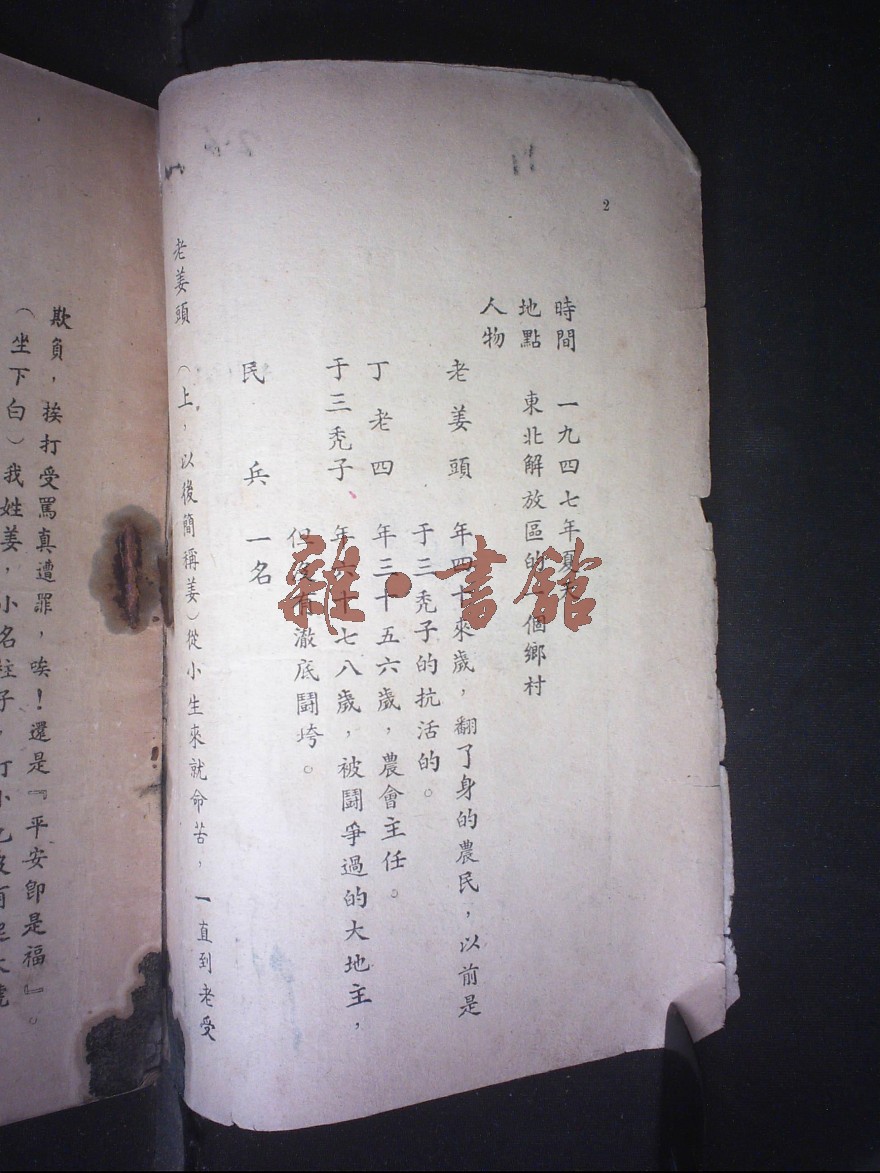 2
時間　一九四七年夏天
地點　東北解放區的一個鄉村
人物
老姜頭　年四十來歲，翻了身的農民，以前是
于三禿子的抗活的。
丁老四　年三十五六歲，農會主任。
于三禿子　年六十七八歲，被鬪爭過的大地主，
但沒有澈底鬪垮。
民兵　一名
老姜頭　（上，以後簡稱姜）從小生來就命苦，一直到老受
欺負，挨打受罵真遭罪，唉！還是『平安卽是福』。
（坐下白）我姓姜，小名柱子，打小
雜·書館